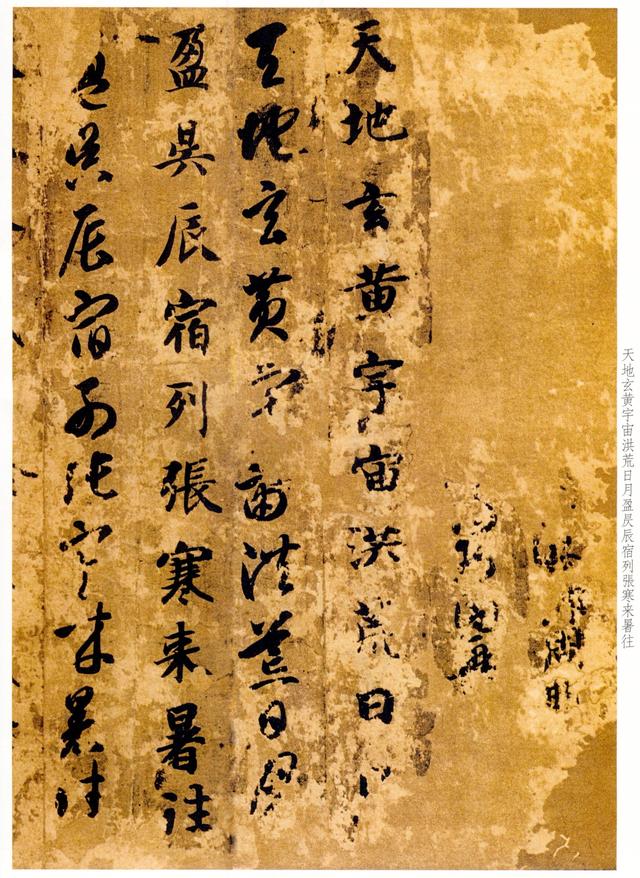 天地玄黄宇宙洪荒日月盈昃辰宿列張寒来暑往
天地玄黄宇宙洪荒日月
天地玄黄宇宙洪荒日月
盈昃辰宿列張寒来暑往
盈昃辰宿列張寒来暑往